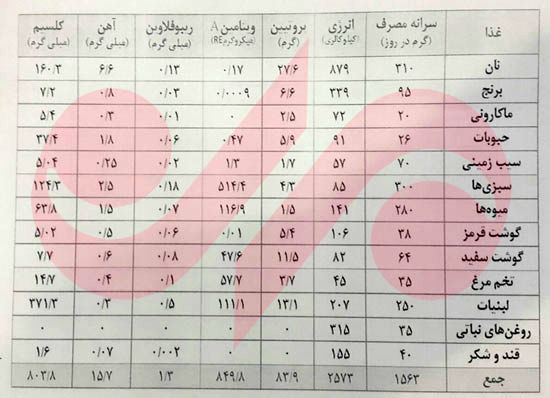 غذا	سرانه مصرف (گرم در روز)	انرژی (کیلوکالری)	پروتیین (گرم)	ویتامین A (میکروگرمRE)	ریبوفلاوین (میلی گرم)	آهن (میلی گرم)	کلسیم (میلی گرم)
نان	۳۱۰	۸۷۹	۲۷/۶	۰/۱۷	۰/۱۳	۶/۶	۱۶۰/۳
برنج	۹۵	۳۳۹	۶/۶	۰/۰۰۰۹	۰/۰۳	۰/۸	۷/۲
ماکارونی	۲۰	۷۲	۲/۵	۰	۰/۰۱	۰/۳	۵/۴
حبوبات	۲۶	۹۱	۵/۹	۰/۴۷	۰/۰۶	۱/۸	۳۷/۴
سیب زمینی	۷۰	۵۷	۱/۷	۱/۳	۰/۰۲	۰/۲۵	۵/۰۴
سبزی‌ها	۳۰۰	۸۵	۴/۳	۵۱۴/۴	۰/۱۸	۲/۵	۱۲۴/۳
میوه‌ها	۲۸۰	۱۴۱	۱/۵	۱۱۶/۹	۰/۰۷	۱/۵	۶۳/۸
گوشت قرمز	۳۸	۱۰۶	۵/۴	۰/۰۱	۰/۰۶	۰/۵	۵/۰۲
گوشت سفید	۶۴	۸۲	۱۱/۵	۴۷/۶	۰/۰۸	۰/۶	۷/۷
تخم مرغ	۳۵	۴۵	۳/۷	۵۷/۷	۰/۱	۰/۴	۱۴/۷
لبنیات	۲۵۰	۲۰۷	۱۳/۱	۱۱۱/۱	۰/۵	۰/۳	۳۷۱/۳
روغن‌های نباتی	۳۵	۳۱۵	۰	۰	۰	۰	۰
قند و شکر	۴۰	۱۵۵	۰	۰	۰/۰۰۲	۰/۰۷	۱/۶
جمع	۱۵۶۳	۲۵۷۳	۸۳/۹	۸۴۹/۸	۱/۳	۱۵/۷	۸۰۳/۸